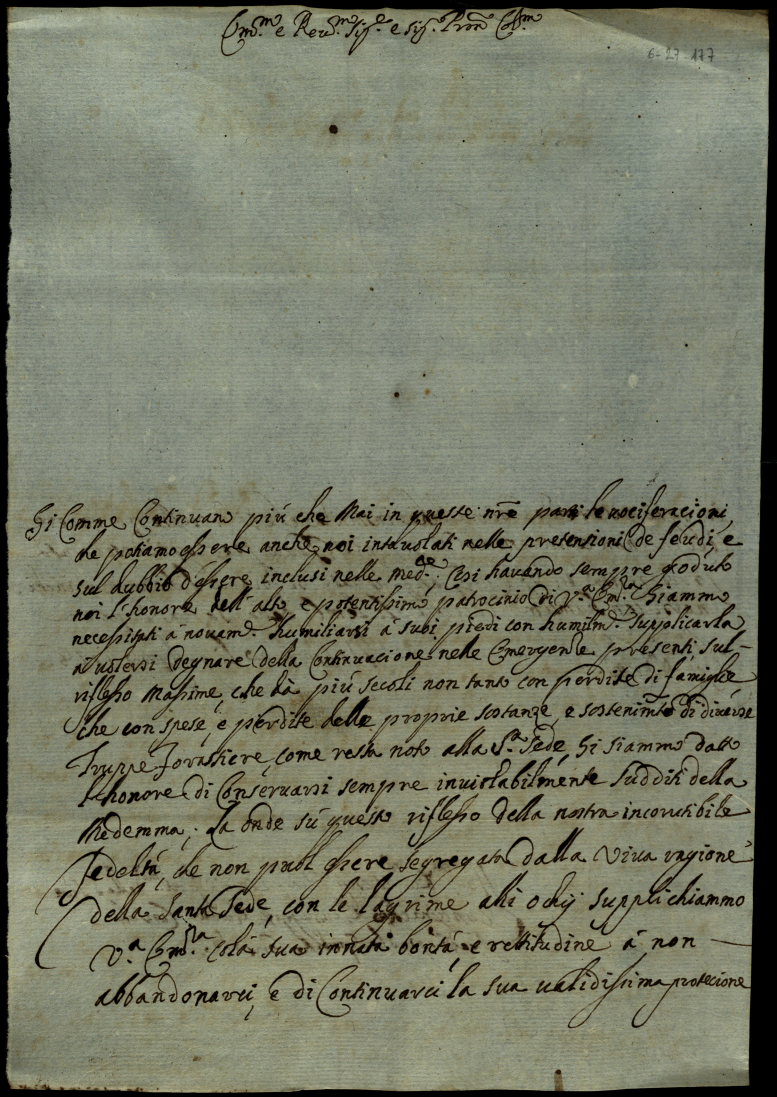 Em.mo e Rev.mo Sig.re e Sig. Pron Col.mo
6-27-177
Si Comme Continuano più che Mai in queste nr̃e parti le vociferacioni,
che potiamo essere anche noi intavolati nelle pretensioni de feudi, e
sul dubbio d'essere inclusi nelle med.de; Così havendo sempre goduto
noi l'honore dell'alto e potentissimo patrocinio di V.a Em.za Siammo
necessitati à novam.e humiliarsi à suoi piedi con humilm.e supplicarla
a volersi degnare della Continuacione nelle Emergenze presenti sul-
riflesso Massime, che da più secoli non tanto con perdite di famiglie
che con spese, e perdite delle proprie sostanze, e sostenim.to di diverse
Truppe forastiere, come resta noto alla S.ta Sede, Si siammo datto
l'honore di Conservarsi sempre inviolabilmente sudditi della
Medemma; La onde sù questo riflesso della nostra incorutibile
fedeltà, che non puol essere segregata dalla viva ragione
della Santa Sede, con le lagrime alli ochij supplichiammo
V.a Em.za colà sua innata bontà, e rettitudine à non
abbandonarci, e di Continuarci la sua validissima protecione